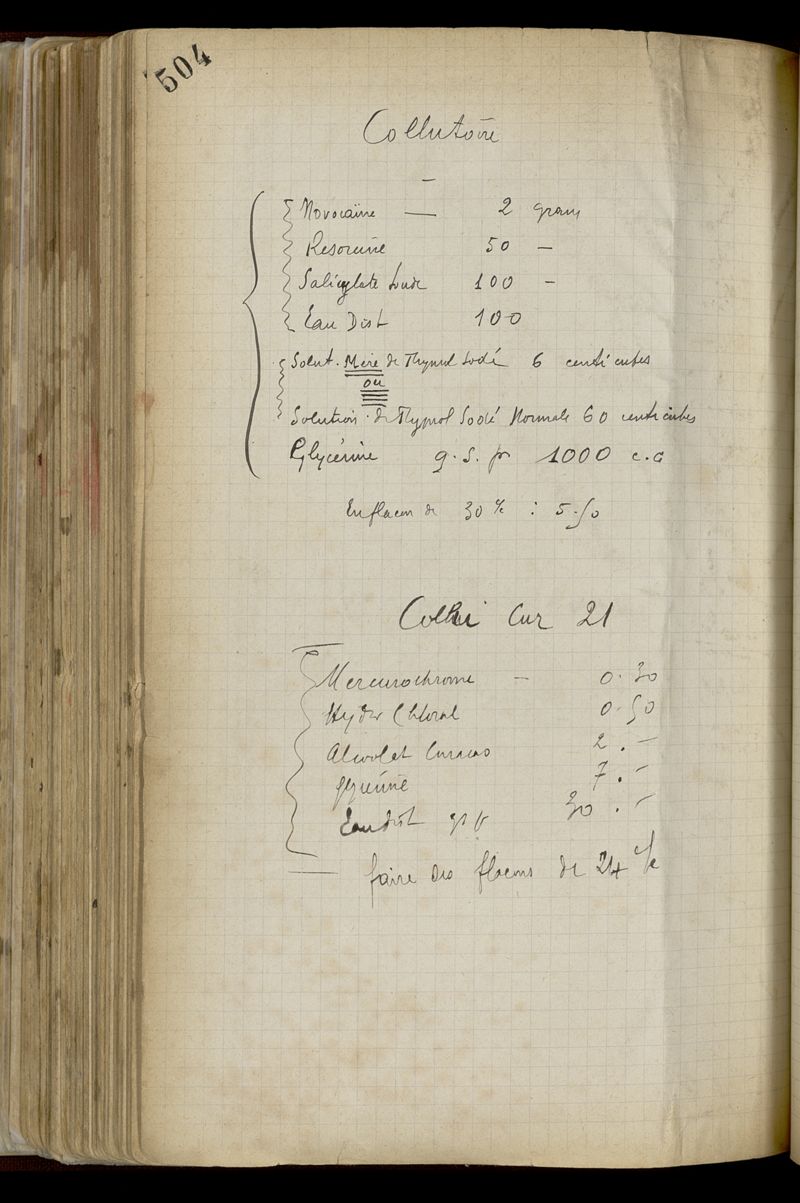 504
Collutoire
Novocaïne — 2 gram
Resorcine 50 —
Salicylate Soude 100 —
Eau Dist 100
Solut. Mère de Thymol Sodé 6 centicubes
ou
Solution de Thymol Sodé Normale 60 centicubes
Glycérine q.s. pr 1000 c.c
En flacon de 30 c/c : 5.50
Collu Cur 21
Mercurochrome — 0.30
Hydr Chloral 0.50
Alcoolat Curacao 2.—
glycérine 7.—
Eau dist 30.—
faire des flacons de 24 c/c